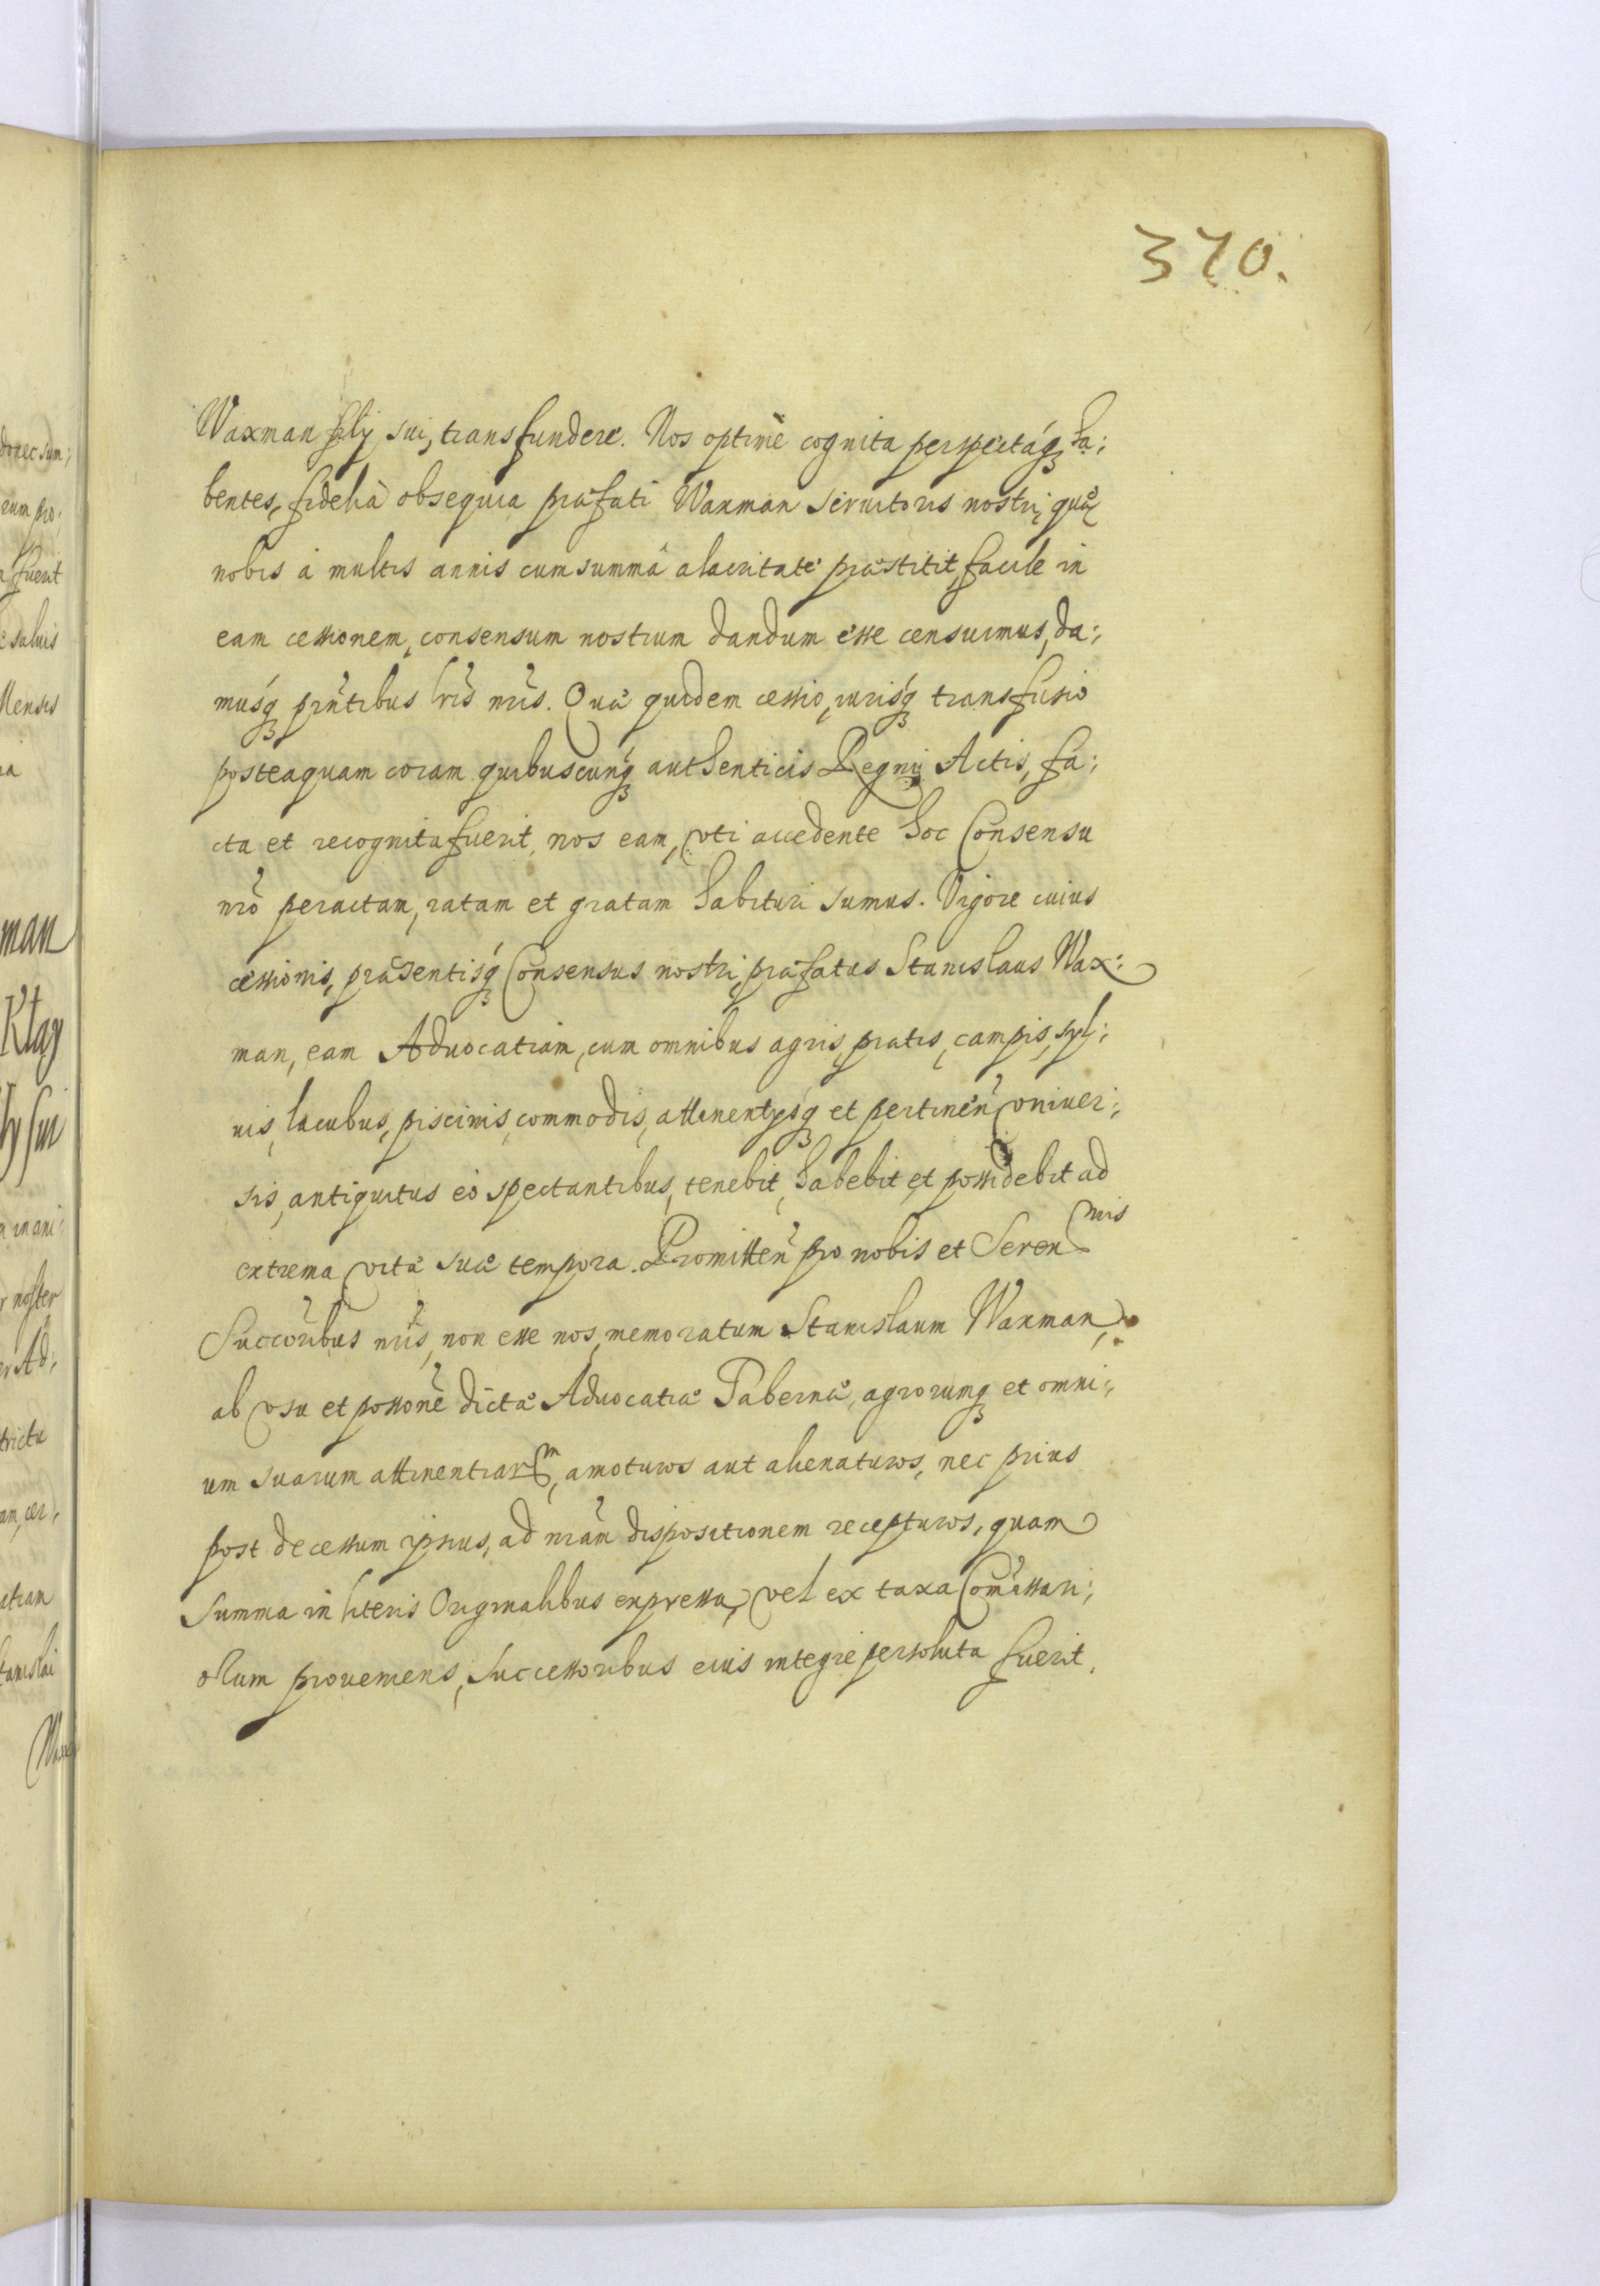 370.
Waxman filÿ sui, transfundere. Nos optime cognita perspectáq₃ ha:
bentes, fidelia obsequia præfati Waxman seruitoris nostri, quæ
nobis à multis annis cum summâ alacritate præstitit, facile in
eam cessionem, consensum nostrum dandum esse censuimus, da:
musq₃ pñtibus lr̃is nr̃is. Quæ quidem cessio, iurisq₃ transfusio
posteaquam coram quibuscunq₃ authenticis Regni Actis, fa:
cta et recognita fuerit, nos eam, vti accedente hoc Consensu
nr̃o peractam, ratam et gratam habituri sumus. Vigore cuius
cessionis, præsentisq₃ Consensus nostri, præfatus Stanislaus Wax:
man, eam Aduocatiam, cum omnibus agris, pratis, campis, syl:
uis, lacubus, piscinis, commodis, attinentÿsq₃ et pertineñ vniuer:
sis, antiquitus eò spectantibus, tenebit, habebit et possidebit ad
extrema vitæ suæ tempora. Promitteñ pro nobis et Seren mis
Succoribus nr̃is, non esse nos, memoratum Stanislaum Waxman,
ab vsu et possone dictæ Aduocatiæ Tabernæ, agrorumq₃ et omni:
um suarum attinentiarum, amoturos aut alienaturos, nec prius
post decessum ipsius, ad nr̃am dispositionem recepturos, quam
Summa in literis Originalibus expressa, vel ex taxa Com̃issari:
orum proueniens, successoribus eius integre persoluta fuerit.